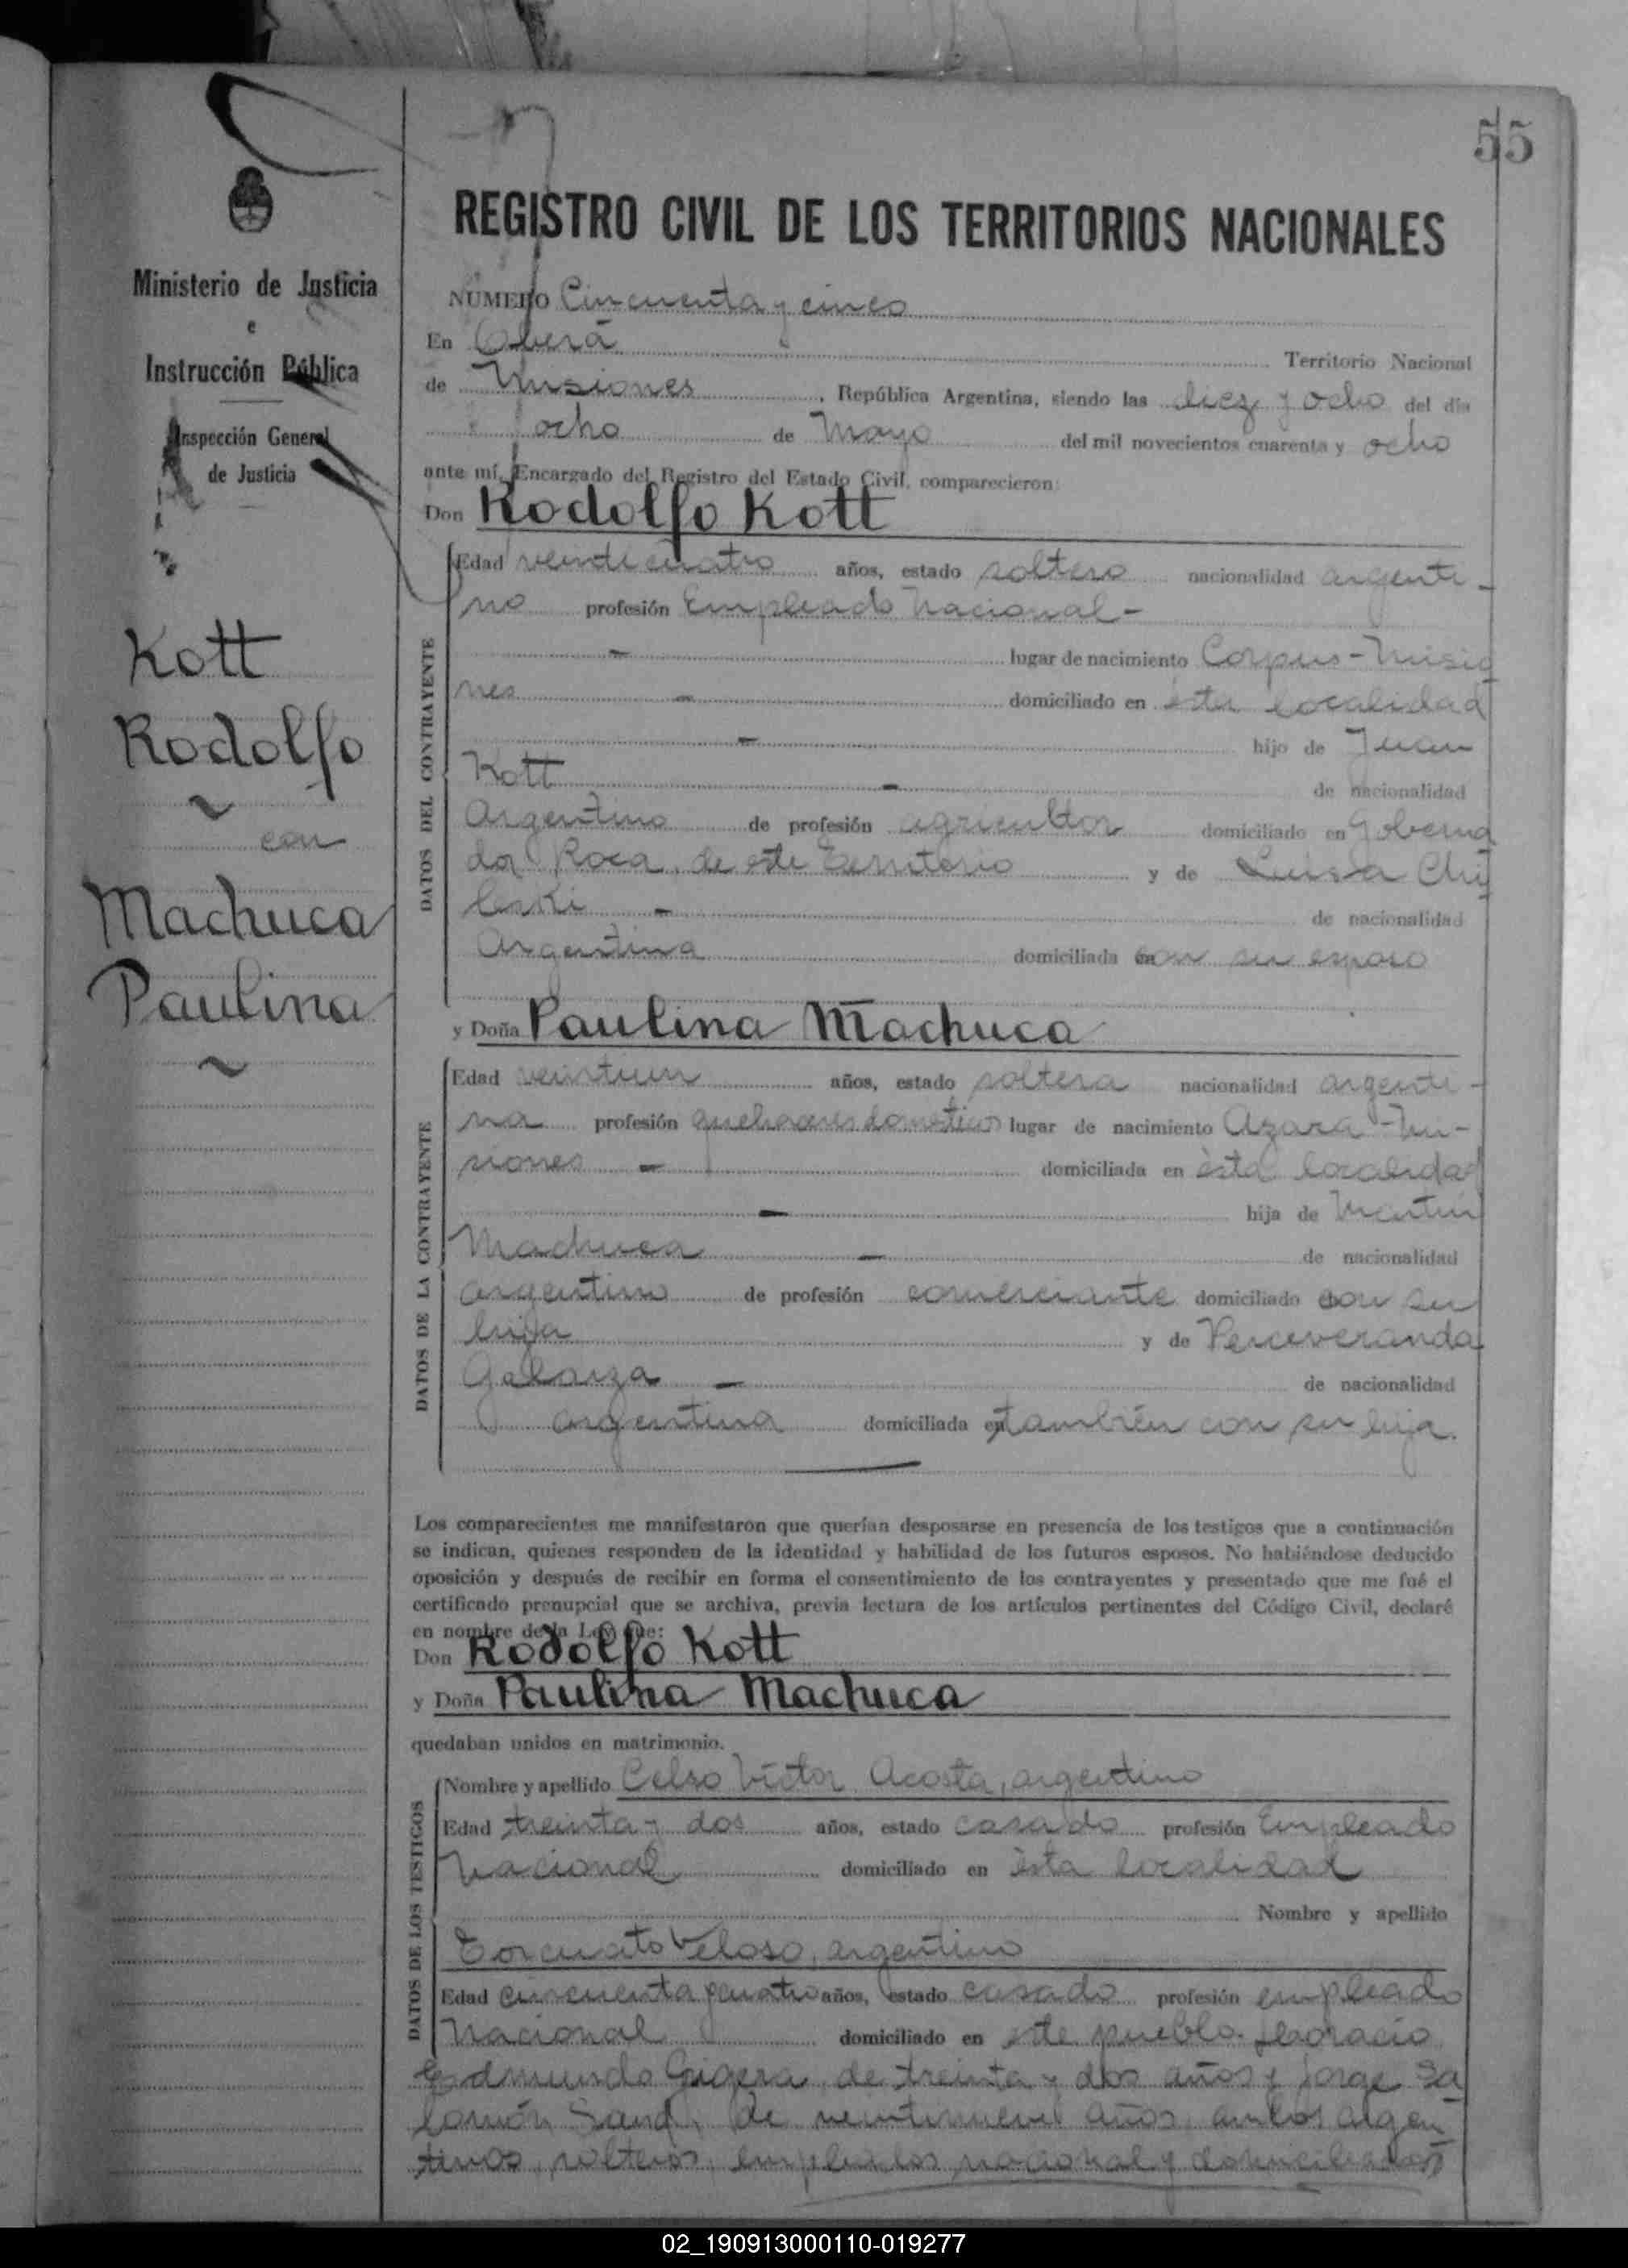 55
REGISTRO CIVIL DE LOS TERRITORIOS NACIONALES
Ministerio de Justicia
e
Instrucción Pública
Inspección General
de Justicia
Kott
Rodolfo
con
Machuca
Paulina
NÚMERO Cincuenta y cinco
En Oberá Territorio Nacional
de Misiones, República Argentina, siendo las diez y ocho del día
ocho de Mayo del mil novecientos cuarenta y ocho
ante mí, Encargado del Registro del Estado Civil, comparecieron:
Don Rodolfo Kott
DATOS DEL CONTRAYENTE
Edad veinticuatro años, estado soltero nacionalidad argenti-
no profesión Empleado Nacional-
- lugar de nacimiento Corpus-Misio
nes - domiciliado en ésta localidad
- hijo de Juan
Kott - de nacionalidad
Argentino de profesión agricultor domiciliado en Goberna
dor Roca, de este Territorio y de Luisa Chi
leski - de nacionalidad
Argentina domiciliada con su esposo
y Doña Paulina Machuca
DATOS DE LA CONTRAYENTE
Edad veintiun años, estado soltera nacionalidad argenti-
na profesión quehaceres domésticos lugar de nacimiento Azara-Mi-
siones - domiciliada en ésta localidad
- hija de Martín
Machuca - de nacionalidad
argentino de profesión comerciante domiciliado con su
hija y de Perceveranda
Galarza - de nacionalidad
argentina domiciliada en también con su hija.
Los comparecientes me manifestaron que querían desposarse en presencia de los testigos que a continuación
se indican, quienes responden de la identidad y habilidad de los futuros esposos. No habiéndose deducido
oposición y después de recibir en forma el consentimiento de los contrayentes y presentado que me fué el
certificado prenupcial que se archiva, previa lectura de los artículos pertinentes del Código Civil, declaré
en nombre de la Ley que:
Don Rodolfo Kott
y Doña Paulina Machuca
quedaban unidos en matrimonio.
DATOS DE LOS TESTIGOS
Nombre y apellido Celso Víctor Acosta, argentino
Edad treinta y dos años, estado casado profesión Empleado
Nacional domiciliado en ésta localidad
Nombre y apellido
Torcuato Veloso, argentino
Edad cincuenta y cuatro años, estado casado profesión empleado
Nacional domiciliado en este pueblo. Horacio
Edmundo Gigera, de treinta y dos años y Jorge Sa
lomón Sand, de veintinueve años, ambos argen
tinos, solteros, empleados nacional y domiciliados
02_190913000110-019277